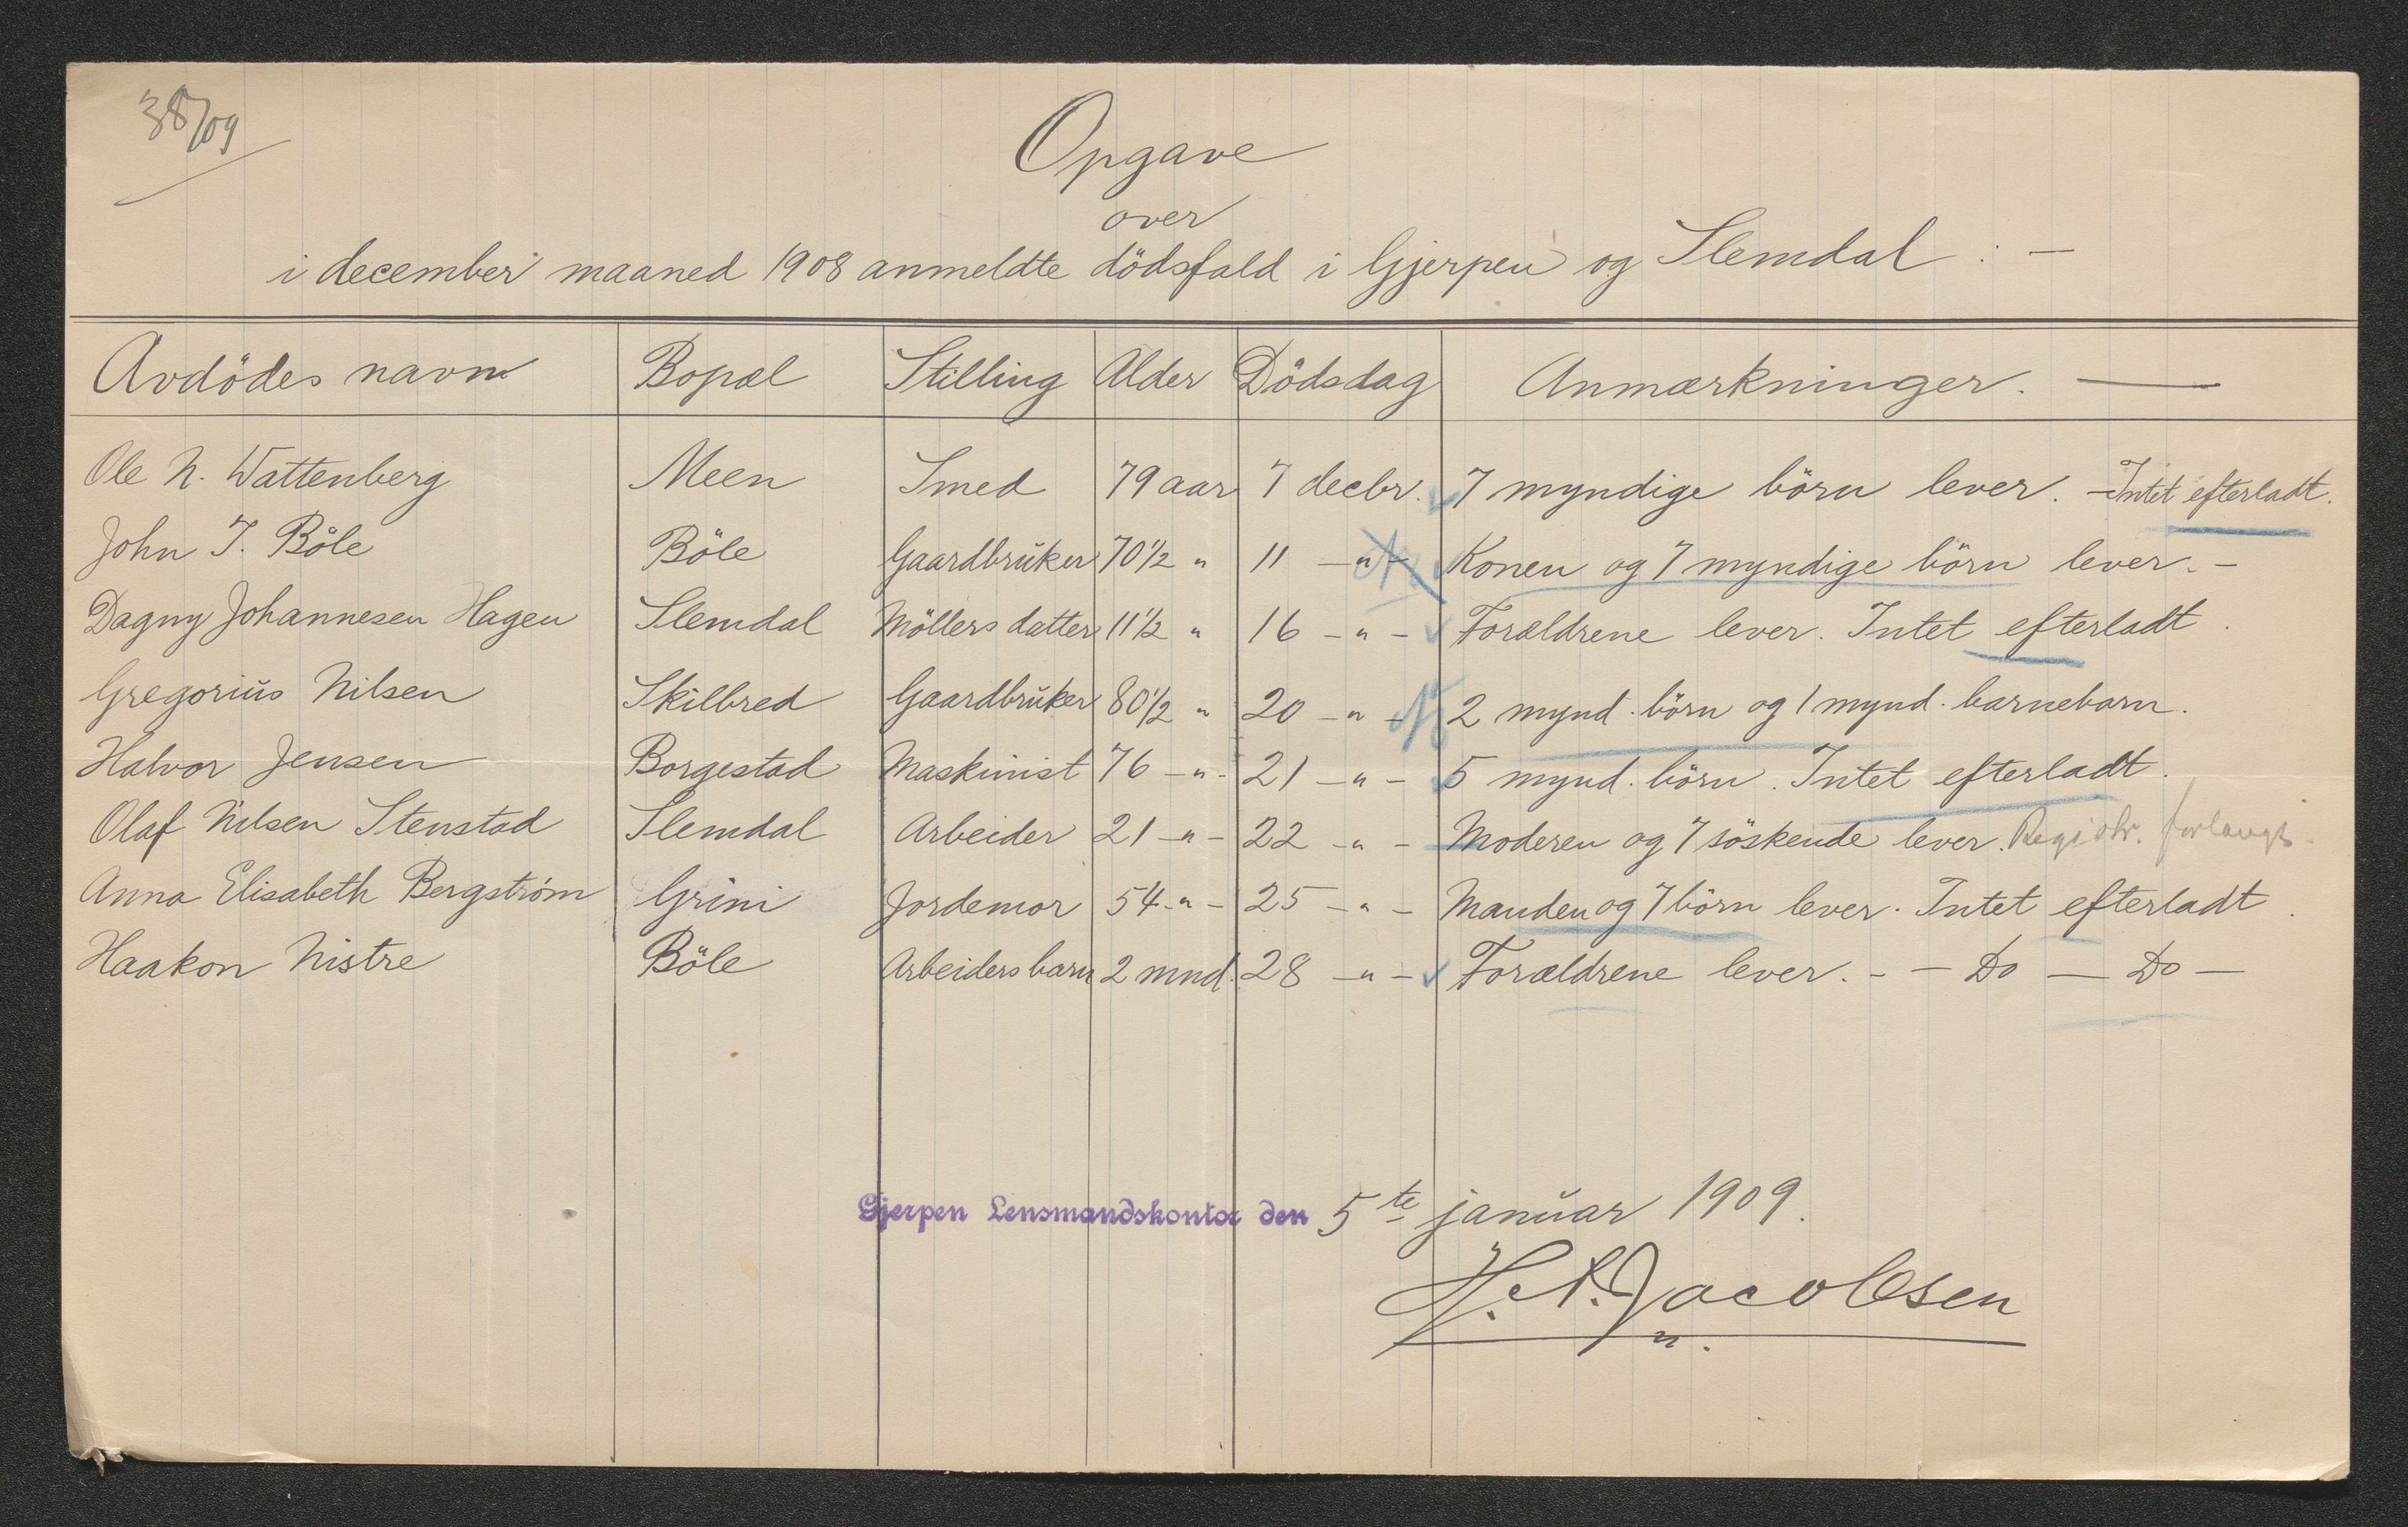 38/09
Opgave
over
i december maaned 1908 anmeldte dödsfald i Gjerpen og Slemdal : —
Avdödes navn Bopæl Stilling Alder Dödsdag Anmærkninger. —
Ole N. Wattenberg Meen Smed 79 aar 7 decbr. 7 myndige börn lever. - Intet efterladt.
John J. Böle Böle Gaardbruker 70 1/2 " 11 - " - Konen og 7 myndige börn lever. -
Dagny Johannesen Hagen Slemdal Möllers datter 11 1/2 " 16 - " - Forældrene lever. Intet efterladt.
Gregorius Nilsen Skilbred Gaardbruker 80 1/2 " 20 - " - 2 mynd. börn og 1 mynd. barnebarn.
Halvor Jensen Borgestad Maskinist 76 - " - 21 - " - 5 mynd. börn. Intet efterladt.
Olaf Nilsen Stenstad Slemdal Arbeider 21 - " - 22 - " - Moderen og 7 söskende lever. Registr. forlangt.
Anna Elisabeth Bergström Grini Jordemor 54 - " - 25 - " - Manden og 7 börn lever. Intet efterladt.
Haakon Nistre Böle Arbeiders barn 2 mnd. 28 - " - Forældrene lever. - - Do — Do —
Gjerpen Lensmandskontor den 5te januar 1909.
H. A. Jacobsen